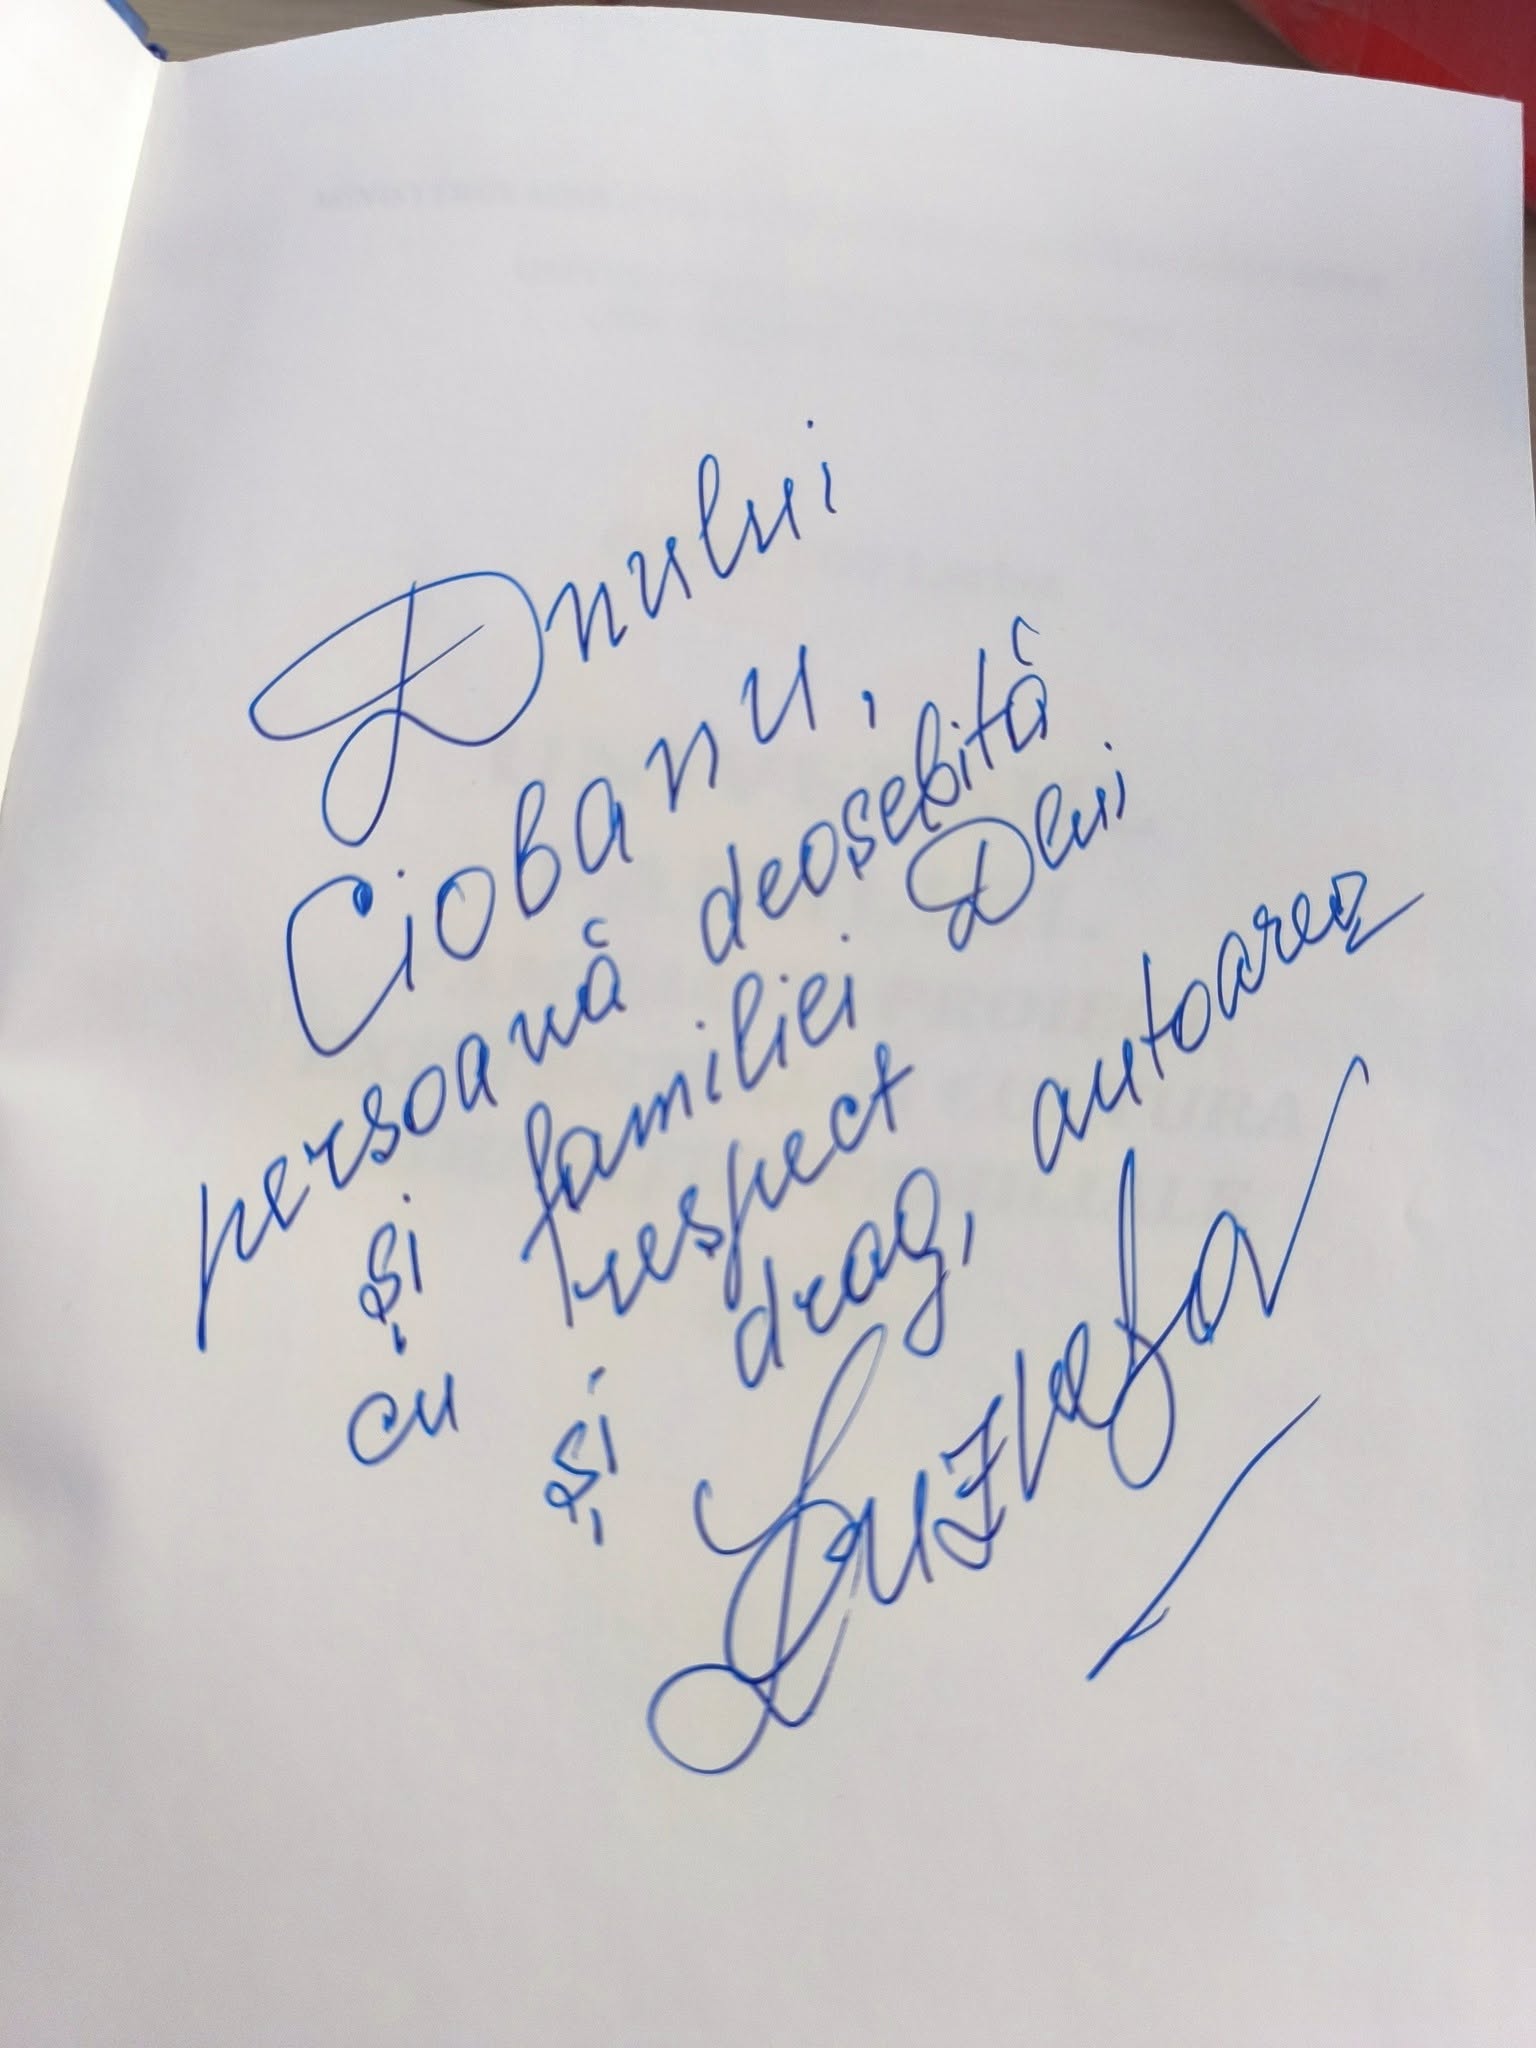 Dnului
Ciobanu,
persoană deosebită
și familiei Dlui
cu respect
și drag, autoarea